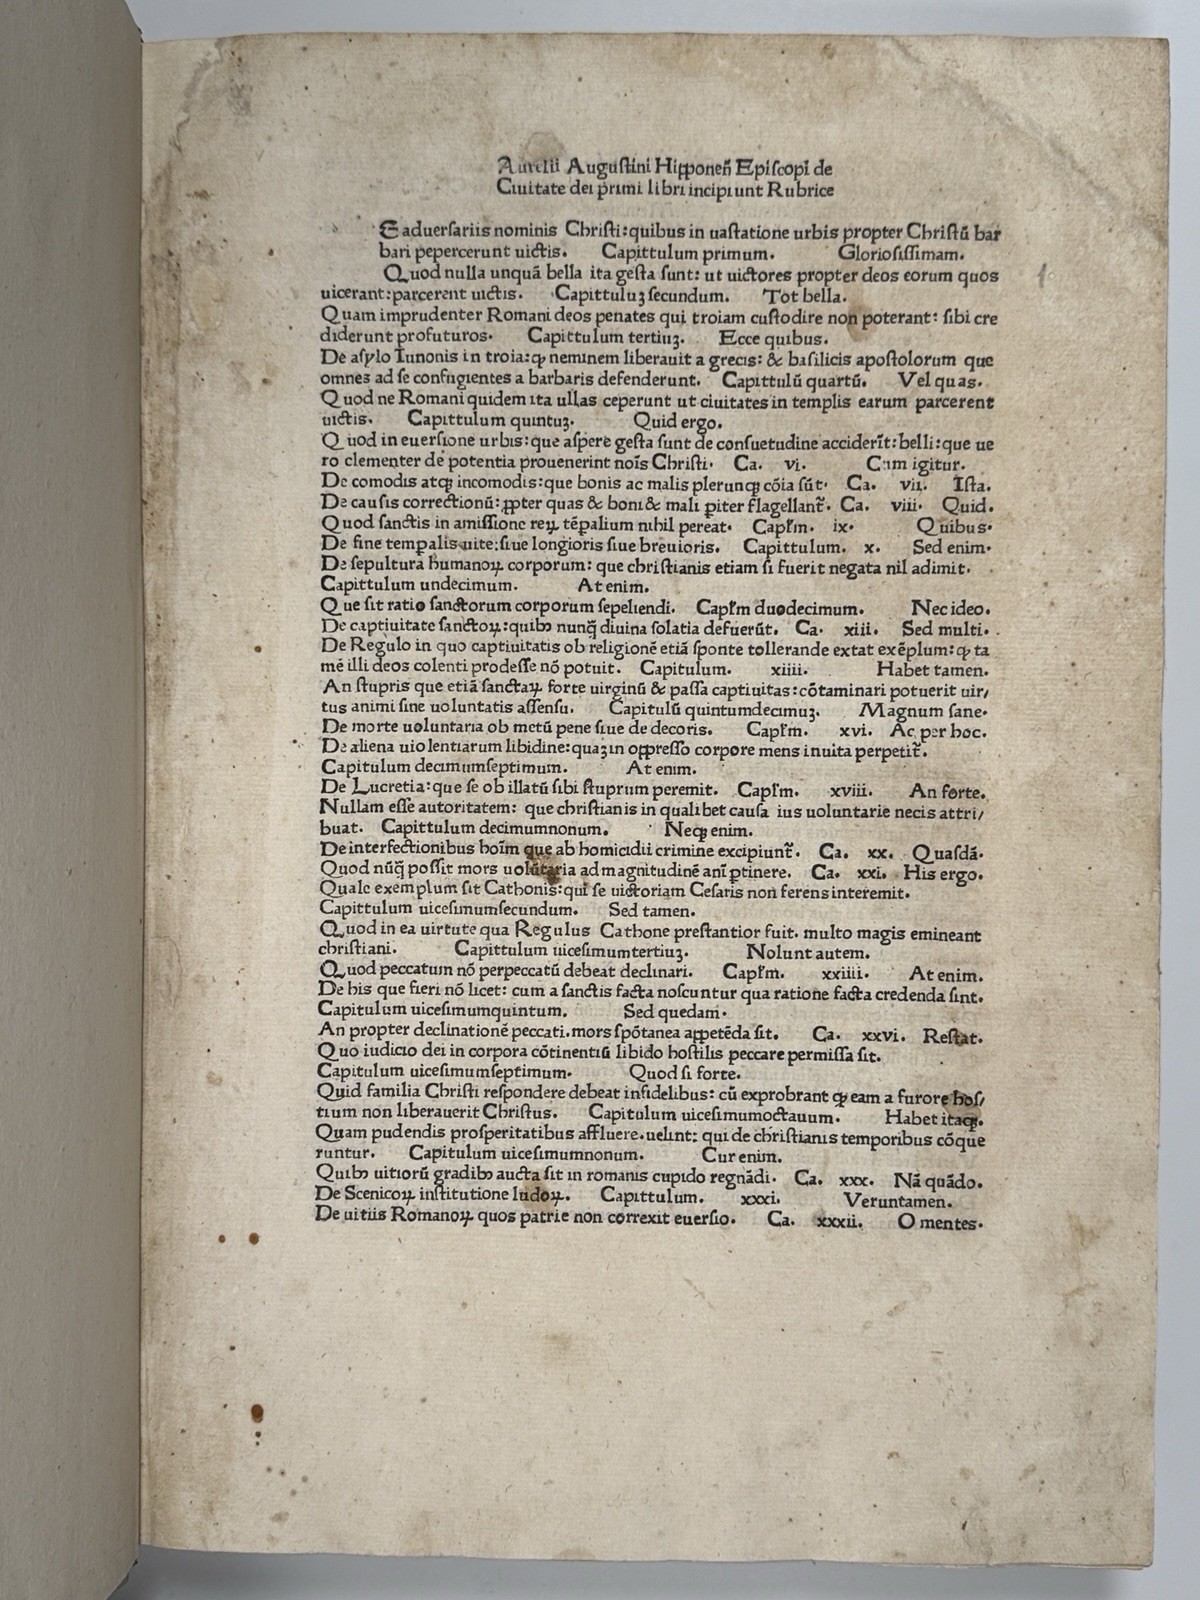 Aurelii Augustini Hipponeñ Episcopi de
Ciuitate dei primi libri incipiunt Rubrice
E aduersariis nominis Christi: quibus in uastatione urbis propter Christū bar
bari pepercerunt uictis. Capittulum primum. Gloriosissimam.
Quod nulla unquā bella ita gesta sunt: ut uictores propter deos eorum quos
uicerant: parcerent uictis. Capittuluꝫ secundum. Tot bella.
Quam imprudenter Romani deos penates qui troiam custodire non poterant: sibi cre
diderunt profuturos. Capittulum tertiuꝫ. Ecce quibus.
De asylo Iunonis in troia: ꝙ neminem liberauit a grecis: & basilicis apostolorum que
omnes ad se confugientes a barbaris defenderunt. Capittulū quartū. Vel quas.
Quod ne Romani quidem ita ullas ceperunt ut ciuitates in templis earum parcerent
uictis. Capittulum quintuꝫ. Quid ergo.
Quod in euersione urbis: que aspere gesta sunt de consuetudine acciderīt: belli: que ue
ro clementer de potentia prouenerint noīs Christi. Ca. vi. Cum igitur.
De comodis atqꝫ incomodis: que bonis ac malis plerunqꝫ cōia sūt. Ca. vii. Ista.
De causis correctionū: ꝓpter quas & boni & mali ꝑiter flagellant̄. Ca. viii. Quid.
Quod sanctis in amissione reꝝ tēꝑalium nihil pereat. Capłm. ix. Quibus.
De fine temꝑalis uite: siue longioris siue breuioris. Capittulum. x. Sed enim.
De sepultura humanoꝝ corporum: que christianis etiam si fuerit negata nil adimit.
Capittulum undecimum. At enim.
Que sit ratio sanctorum corporum sepeliendi. Capłm duodecimum. Nec ideo.
De captiuitate sanctoꝝ: quibꝰ nunꝗ̄ diuina solatia defuerūt. Ca. xiii. Sed multi.
De Regulo in quo captiuitatis ob religionē etiā sponte tollerande extat exēplum: ꝙ ta
mē illi deos colenti prodesse nō potuit. Capitulum. xiiii. Habet tamen.
An stupris que etiā sanctaꝝ forte uirginū & passa captiuitas: cōtaminari potuerit uir/
tus animi sine uoluntatis assensu. Capitulū quintumdecimuꝫ. Magnum sane.
De morte uoluntaria ob metū pene siue de decoris. Capłm. xvi. Ac per hoc.
De aliena uiolentiarum libidine: quaꝫ in oppresso corpore mens inuita perpetit̄.
Capitulum decimumseptimum. At enim.
De Lucretia: que se ob illatū sibi stuprum peremit. Capłm. xviii. An forte.
Nullam esse autoritatem: que christianis in qualibet causa ius uoluntarie necis attri/
buat. Capittulum decimumnonum. Neqꝫ enim.
De interfectionibus hoīm que ab homicidii crimine excipiunt̄. Ca. xx. Quasdā.
Quod nūꝗ̄ possit mors uolūtaria ad magnitudinē anī ꝑtinere. Ca. xxi. His ergo.
Quale exemplum sit Cathonis: qui se uictoriam Cesaris non ferens interemit.
Capittulum uicesimumsecundum. Sed tamen.
Quod in ea uirtute qua Regulus Cathone prestantior fuit. multo magis emineant
christiani. Capittulum uicesimumtertiuꝫ. Nolunt autem.
Quod peccatum nō per peccatū debeat declinari. Capłm. xxiiii. At enim.
De his que fieri nō licet: cum a sanctis facta noscuntur qua ratione facta credenda sint.
Capitulum uicesimumquintum. Sed quedam.
An propter declinationē peccati. mors spōtanea appetēda sit. Ca. xxvi. Restat.
Quo iudicio dei in corpora cōtinentiū libido hostilis peccare permissa sit.
Capitulum uicesimumseptimum. Quod si forte.
Quid familia Christi respondere debeat infidelibus: cū exprobrant ꝙ eam a furore hos/
tium non liberauerit Christus. Capitulum uicesimumoctauum. Habet itaqꝫ.
Quam pudendis prosperitatibus affluere. uelint: qui de christianis temporibus cōque
runtur. Capitulum uicesimumnonum. Cur enim.
Quibꝰ uitiorū gradibꝰ aucta sit in romanis cupido regnādi. Ca. xxx. Nā quādo.
De Scenicoꝝ institutione ludoꝝ. Capittulum. xxxi. Veruntamen.
De uitiis Romanoꝝ quos patrie non correxit euersio. Ca. xxxii. O mentes.
1